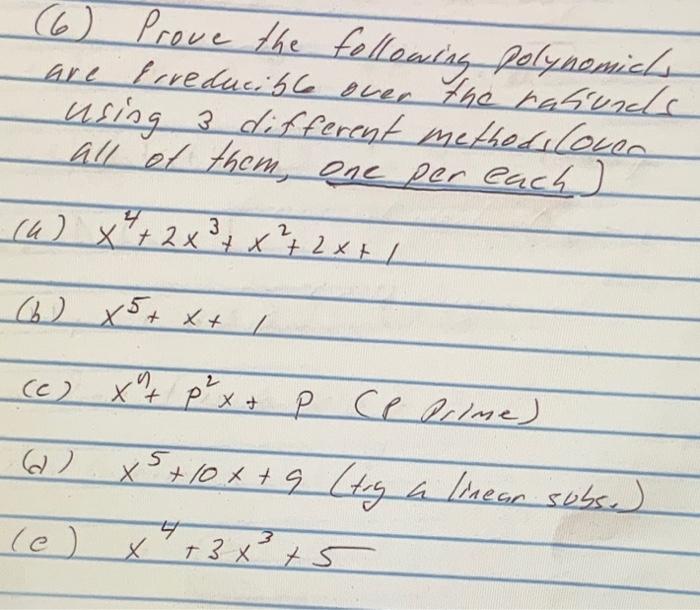 (6) Prove the following polynomials
are irreducible over the rationals
using 3 different methods (over
all of them, one per each)
(a) x⁴ + 2x³ + x² + 2x + 1
(b) x⁵ + x + 1
(c) xⁿ + p²x + p (p prime)
(d) x⁵ + 10x + 9 (try a linear subs.)
(e) x⁴ + 3x³ + 5